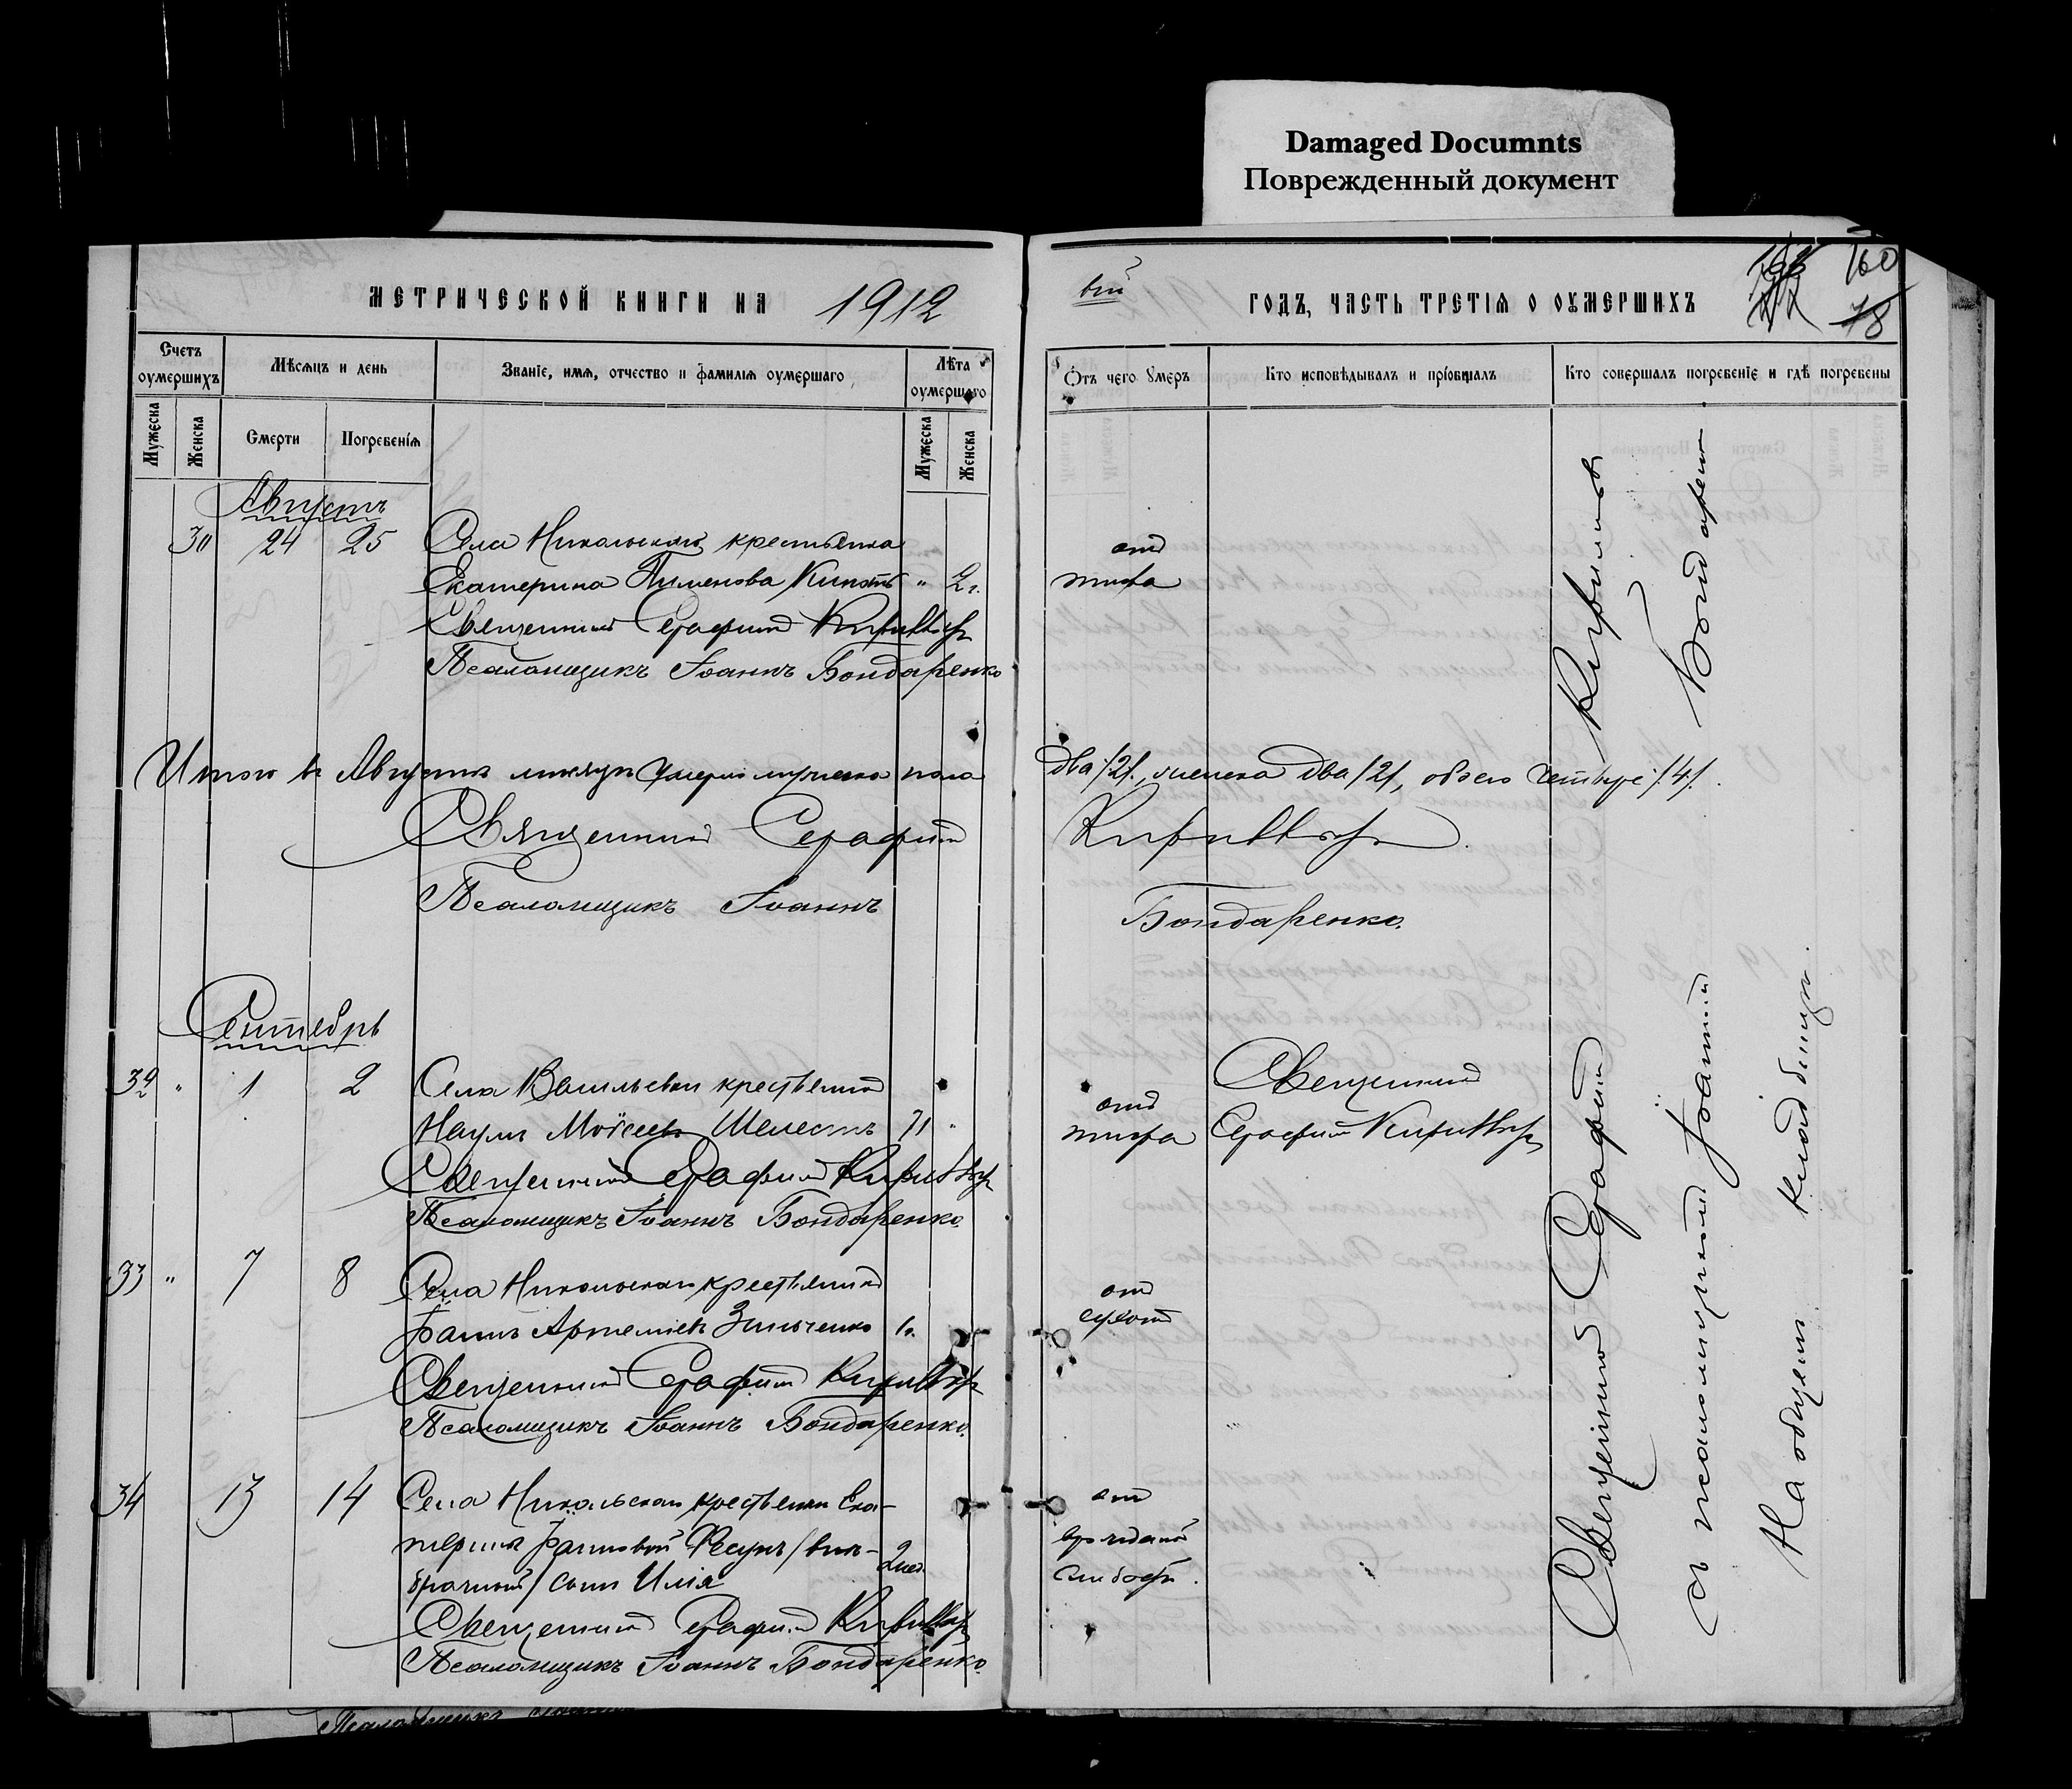 Damaged Documnts
Поврежденный документ
МЕТРИЧЕСКОЙ КНИГИ НА 1912
вый ГОДЪ, ЧАСТЬ ТРЕТІЯ О ОУМЕРШИХЪ
160
78
Счетъ оумершихъ
Мѣсяцъ и день
Званіе, имя, отчество и фамилія оумершаго
Лѣта оумершаго
Отъ чего умеръ
Кто исповѣдывалъ и пріобщалъ
Кто совершалъ погребеніе и гдѣ погребены
Мужеска
Женска
Смерти
Погребенія
Мужеска
Женска
Августъ
30 24 25 Села Никольскаго крестьянка
Екатерина Пименова " 2 г.
отъ
тифа
Священникъ Серафимъ
Псаломщикъ Іоаннъ Бондаренко
Итого въ Августѣ мѣсяцѣ умерло мужеска пола
два /2/, женска два /2/, обоего четыре /4/.
Священникъ Серафимъ
Псаломщикъ Іоаннъ
Бондаренко.
Сентябрь
32 " 1 2 Села Васильевки крестьянинъ
Наумъ Моисеевъ Шелестъ 71 "
отъ
тифа
Священникъ
Серафимъ
Священникъ Серафимъ
Псаломщикъ Іоаннъ Бондаренко
33 " 7 8 Села Никольскаго крестьянинъ
Іоаннъ Артеміевъ Зинченко 1 г.
отъ
Священникъ Серафимъ
Псаломщикъ Іоаннъ Бондаренко.
34 13 14 Села Никольскаго крестьянки Ека-
терины Іоанновой /внѣ-
брачный/ сынъ Илія 2 мес.
отъ
врожденной
слабости.
Священникъ Серафимъ
Псаломщикъ Іоаннъ Бондаренко
Священникъ Серафимъ
съ псаломщикомъ Іоанномъ Бондаренко
На общемъ кладбищѣ.